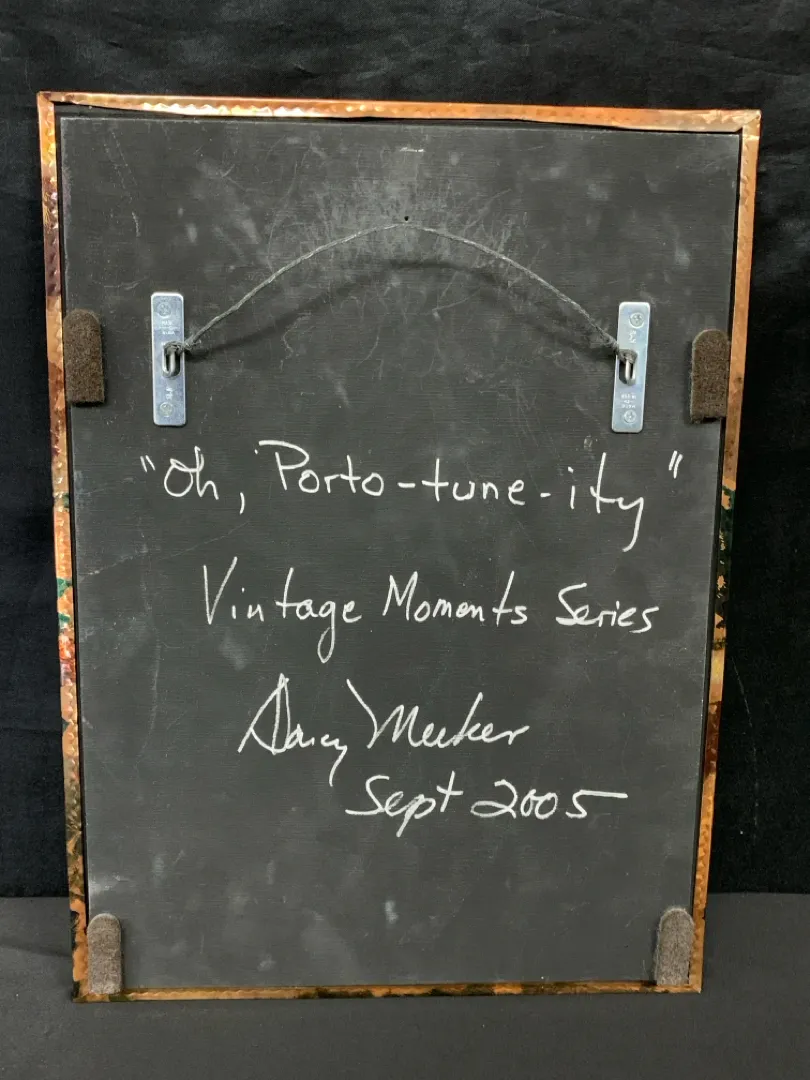 "Oh, Porto-tune-ity"
Vintage Moments Series
Darcy Meeker
Sept 2005